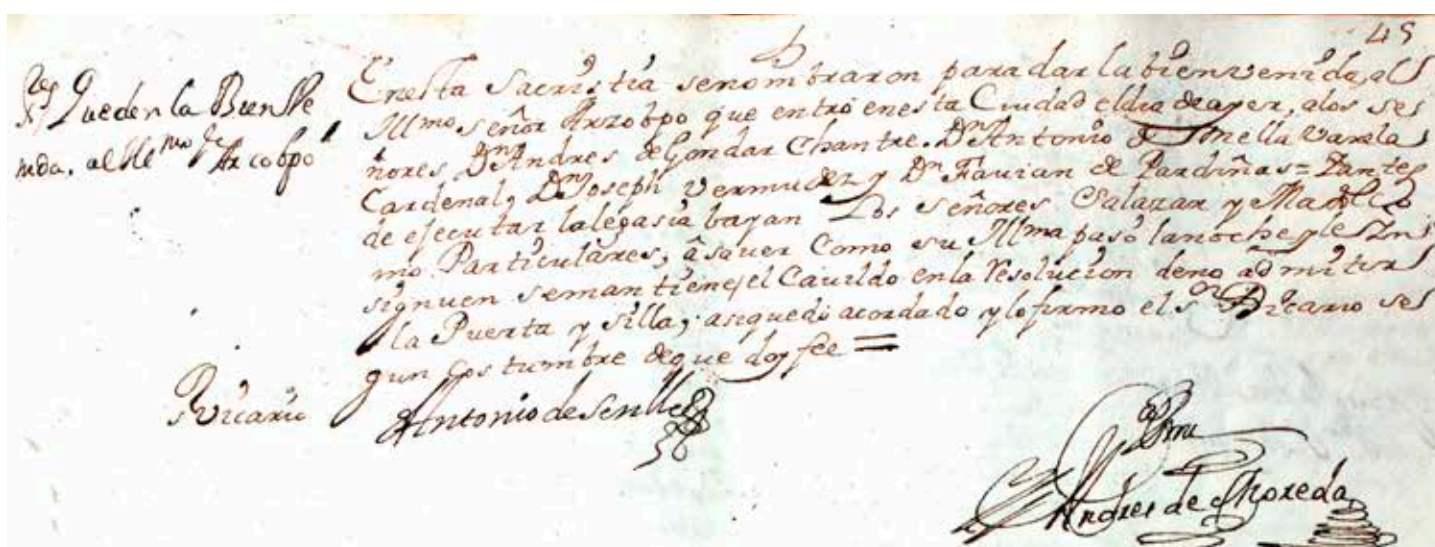 45
Sres Que den la Bienve
nida, al Ille.mo Sr Arcobpo
En esta Sacristia se nombraron para dar la bienvenida, al
Illmo señor Arzobpo que entró en esta Ciudad el dia de ayer, a los se
ñores Dn Andres de Gondar Chantre. Dn Antonio de Varela
Cardenal, Dn Joseph Vermudez y Dn Favian de Pardiñas = Y antes
de ejecutar la legasia bayan Los señores Salazar y
mo Particulares, â saver Como su Illma pasó la noche y le Yn
signuen se mantiene el Cavildo en la Resolucion de no admitir
la Puerta y silla, asi quedó acordado y lo firmo el sor Vicario se
gun Costumbre de que doy fee =
Vicario
Antonio de
Andres de